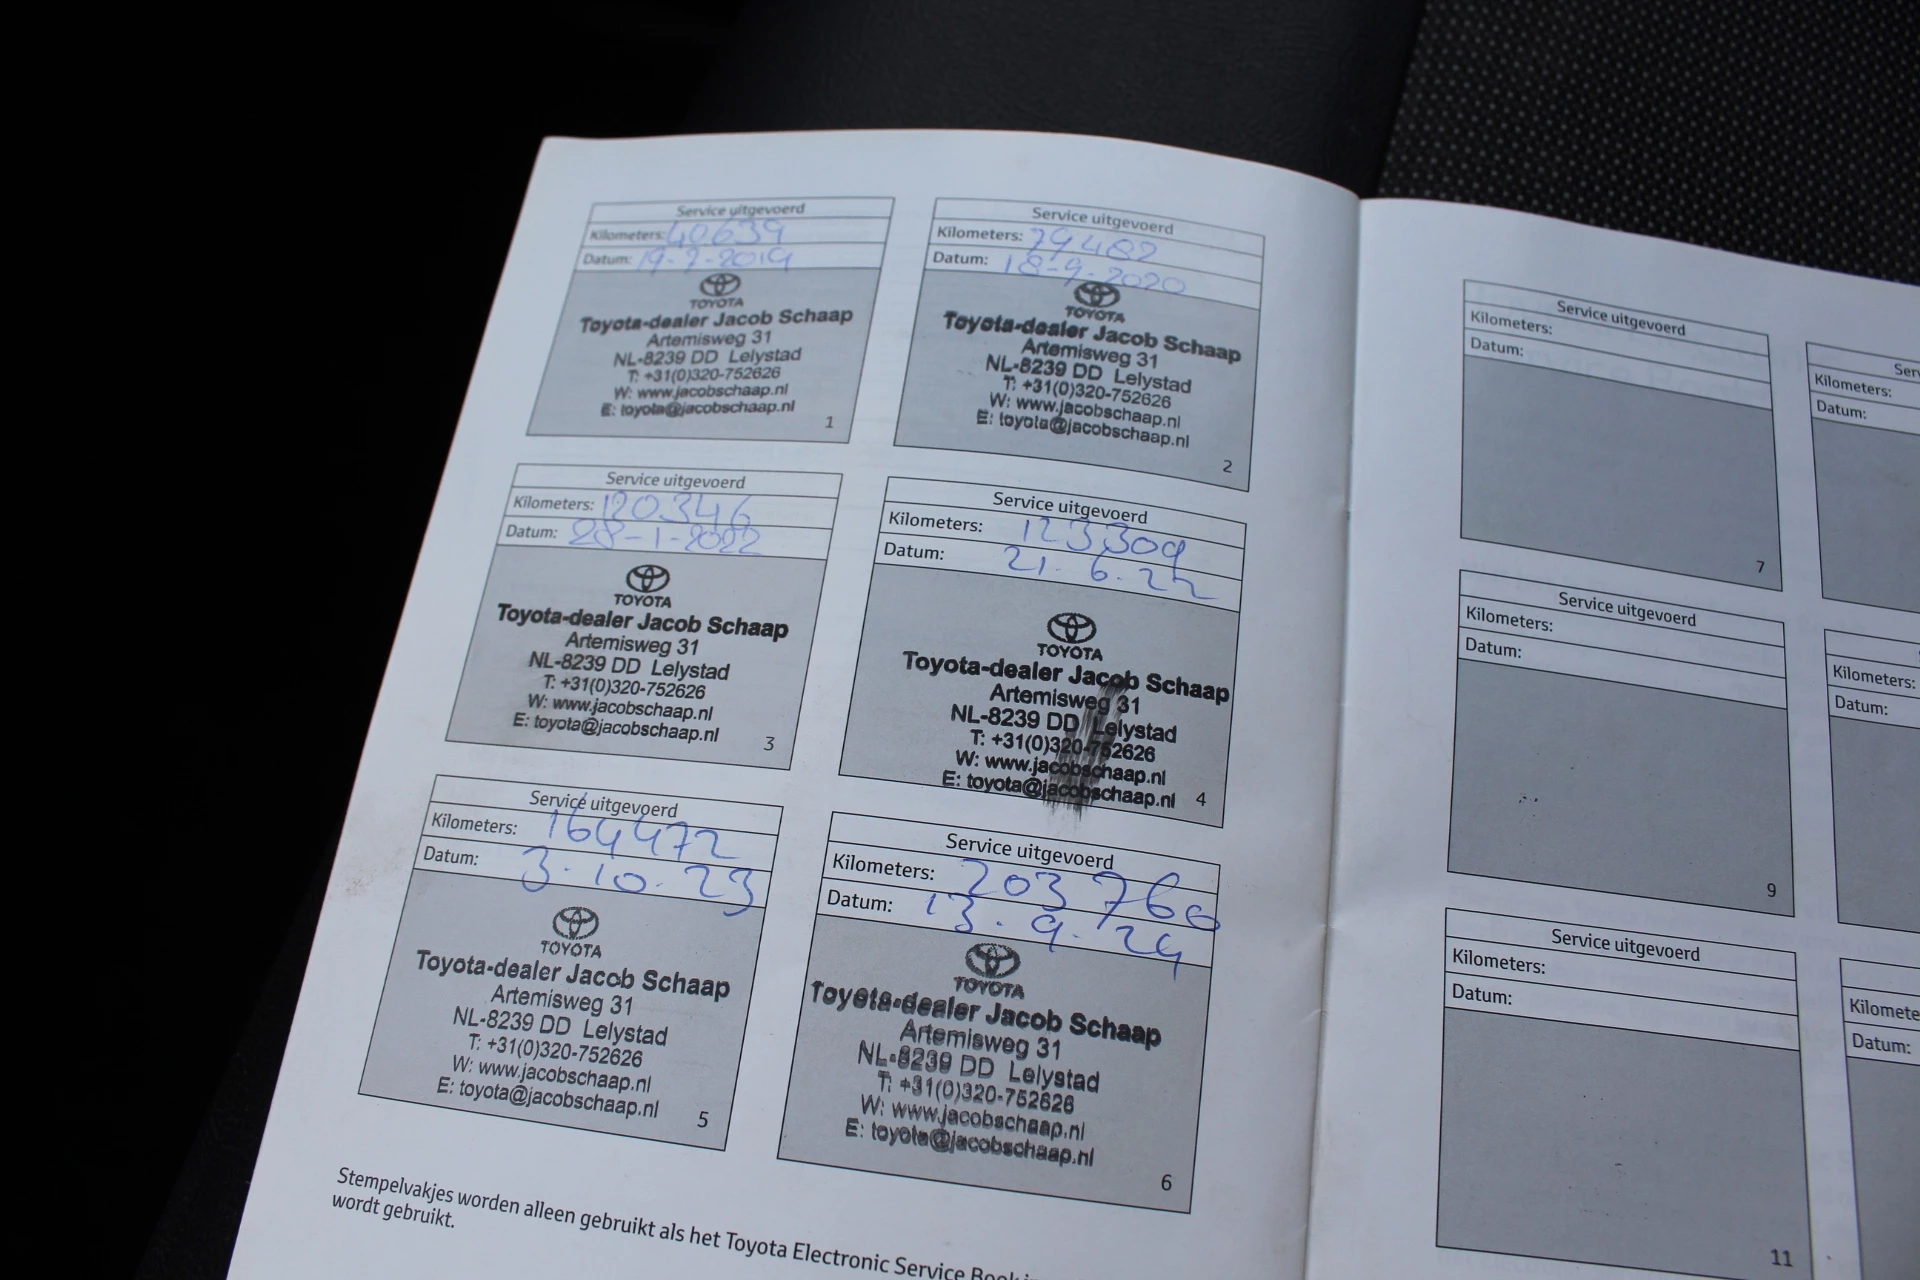 Service uitgevoerd
Kilometers: 40639
Datum: 19-9-2019
TOYOTA
Toyota-dealer Jacob Schaap
Artemisweg 31
NL-8239 DD Lelystad
T: +31(0)320-752626
W: www.jacobschaap.nl
E: toyota@jacobschaap.nl
1
Service uitgevoerd
Kilometers: 79482
Datum: 18-9-2020
TOYOTA
Toyota-dealer Jacob Schaap
Artemisweg 31
NL-8239 DD Lelystad
T: +31(0)320-752626
W: www.jacobschaap.nl
E: toyota@jacobschaap.nl
2
Service uitgevoerd
Kilometers: 120346
Datum: 28-1-2022
TOYOTA
Toyota-dealer Jacob Schaap
Artemisweg 31
NL-8239 DD Lelystad
T: +31(0)320-752626
W: www.jacobschaap.nl
E: toyota@jacobschaap.nl
3
Service uitgevoerd
Kilometers: 123309
Datum: 21.6.22
TOYOTA
Toyota-dealer Jacob Schaap
Artemisweg 31
NL-8239 DD Lelystad
T: +31(0)320-752626
W: www.jacobschaap.nl
E: toyota@jacobschaap.nl
4
Service uitgevoerd
Kilometers: 164472
Datum: 3.10.23
TOYOTA
Toyota-dealer Jacob Schaap
Artemisweg 31
NL-8239 DD Lelystad
T: +31(0)320-752626
W: www.jacobschaap.nl
E: toyota@jacobschaap.nl
5
Service uitgevoerd
Kilometers: 203760
Datum: 13.9.24
TOYOTA
Toyota-dealer Jacob Schaap
Artemisweg 31
NL-8239 DD Lelystad
T: +31(0)320-752626
W: www.jacobschaap.nl
E: toyota@jacobschaap.nl
6
Stempelvakjes worden alleen gebruikt als het Toyota Electronic Service Book
wordt gebruikt.
Service uitgevoerd
Kilometers:
Datum:
7
Kilometers:
Datum:
Service uitgevoerd
Kilometers:
Datum:
9
Kilometers:
Datum:
Service uitgevoerd
Kilometers:
Datum:
11
Datum: